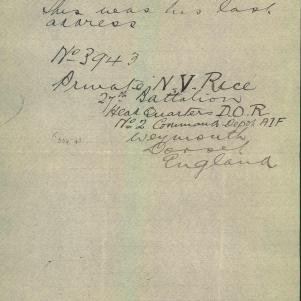 This was his last
address
No 3943
Private N. V. Rice
27th Battalion
Head Quarters D.O.R
No 2 Command Depot AIF
Weymouth
Dorset
England